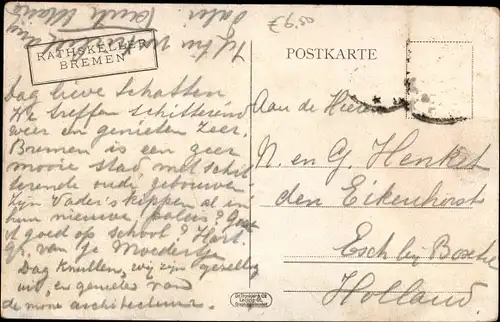 RATHSKELLER
BREMEN
Dag lieve Schatten
We treffen schitterend
weer en genieten zeer.
Bremen is een zeer
mooie stad, met schit
terende oude gebouwen
zijn Vader's kippen al in
hun nieuwe paleis? Gaat
t goed op school? Hart.
gr. van je Moedertje
Dag Knullen, wij zijn gezellig
uit, en genieten van
de mooie architectuur.
POSTKARTE
Aan de Heeren
N. en G. Henket
den Eikenhorst
Esch bij Boxtel
Holland.